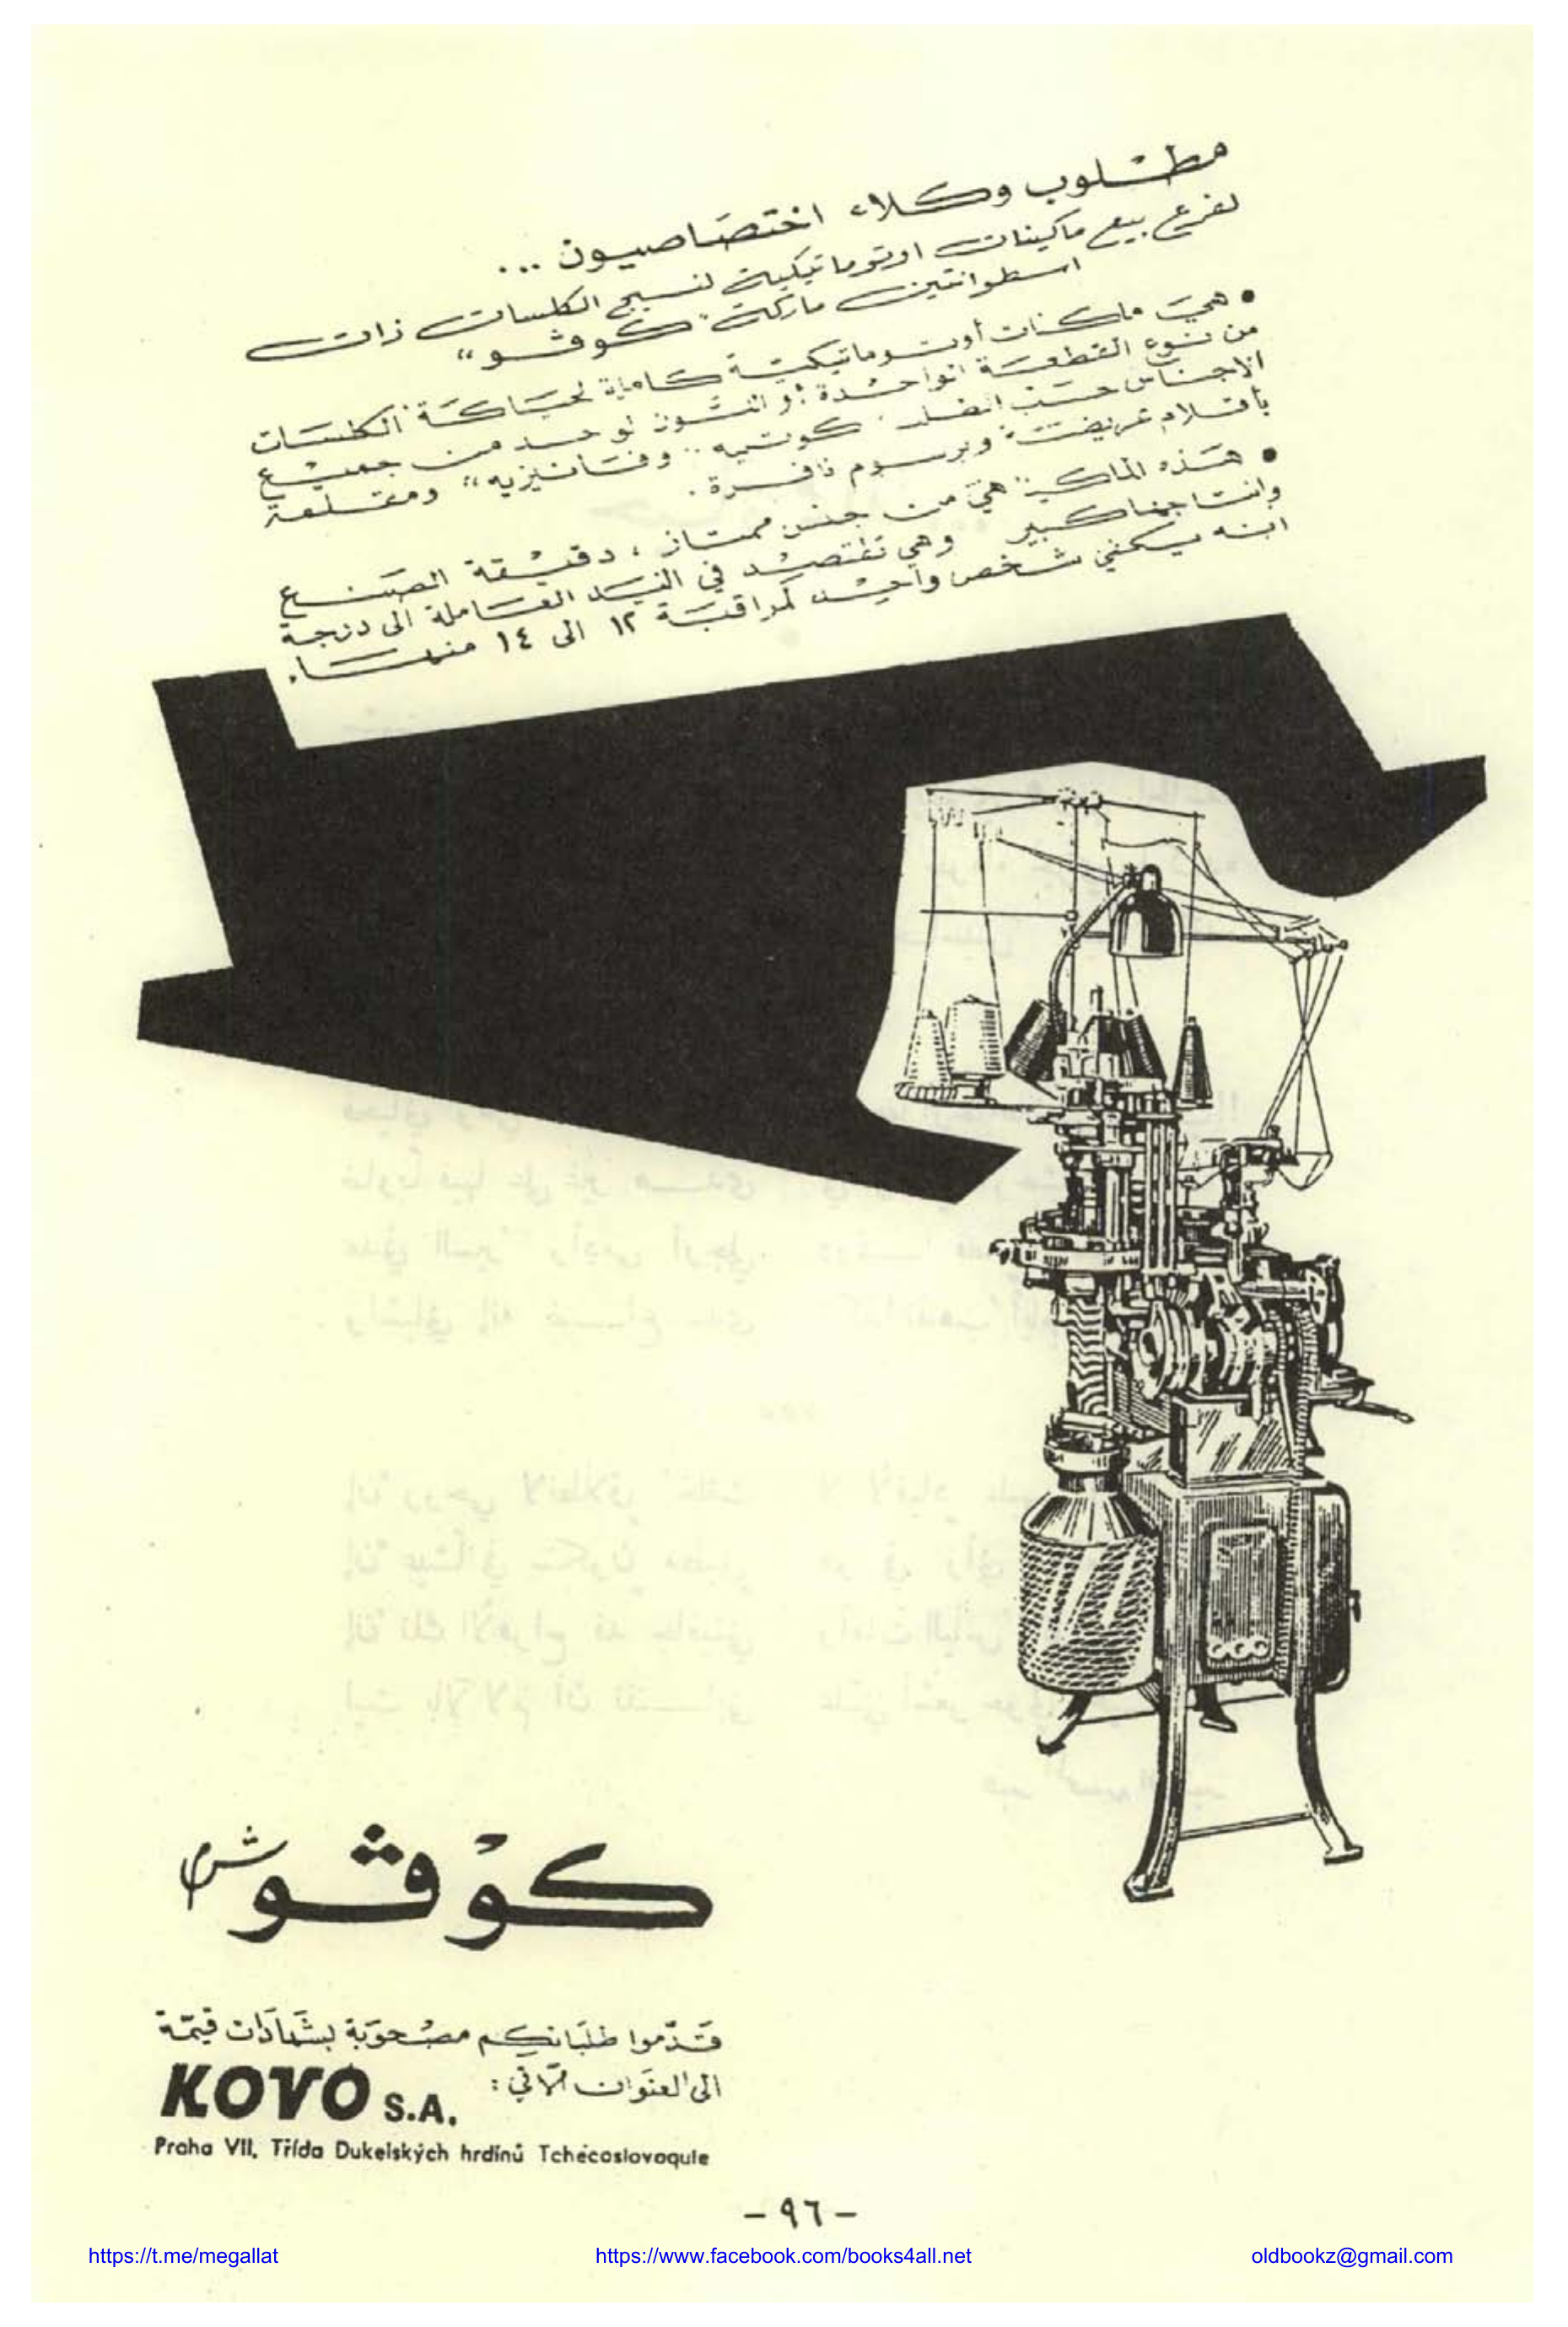 مطلوب وكلاء اختصاصيون ...
لفرع بيع ماكينات اوتوماتيكية لنسيج الكلسات ذات
اسطوانتين ماركة "كوڤو"
• هي ماكنات أوتوماتيكية كاملة لحياكة الكلسات
من نوع القطعة الواحدة أو اللون لوحد من جميع
الاجناس حسب الضلد. كوتيه .. وفانيزيه" ومقلمة
بأقلام عريضة وبرسوم نافرة.
• هذه الماكينة هي من جنس ممتاز، دقيقة الصنع
وانتاجها كبير وهي تقتصد في اليد العاملة الى درجة
انه يكفي شخص واحد لمراقبة ١٢ الى ١٤ منها.
كوڤو ش.م
قدّموا طلباتكم مصحوبة بشهادات قيّمة
الى العنوان الآتي :
KOVO S.A.
Praha VII, Třída Dukelských hrdinů Tchécoslovaquie
- ٩٦ -
https://t.me/megallat
https://www.facebook.com/books4all.net
oldbookz@gmail.com